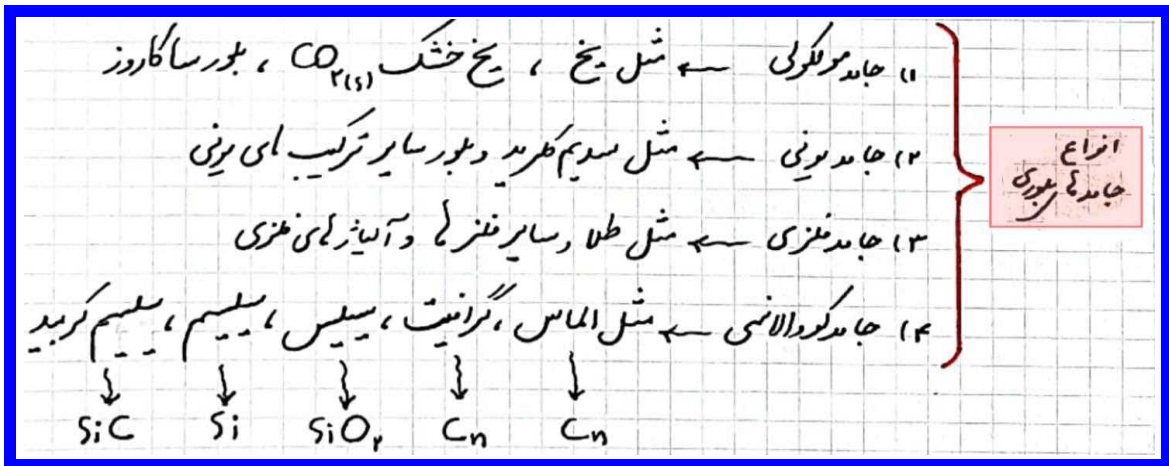 انواع
جامدهای بلوری
۱) جامد مولکولی ← مثل یخ ، یخ خشک CO۲(s) ، بلور ساکاروز
۲) جامد یونی ← مثل سدیم کلرید و بلور سایر ترکیب های یونی
۳) جامد فلزی ← مثل طلا و سایر فلزها و آلیاژهای فلزی
۴) جامد کووالانسی ← مثل الماس ، گرافیت ، سیلیس ، سیلیسیم ، سیلیسیم کربید
Cn Cn SiO۲ Si SiC